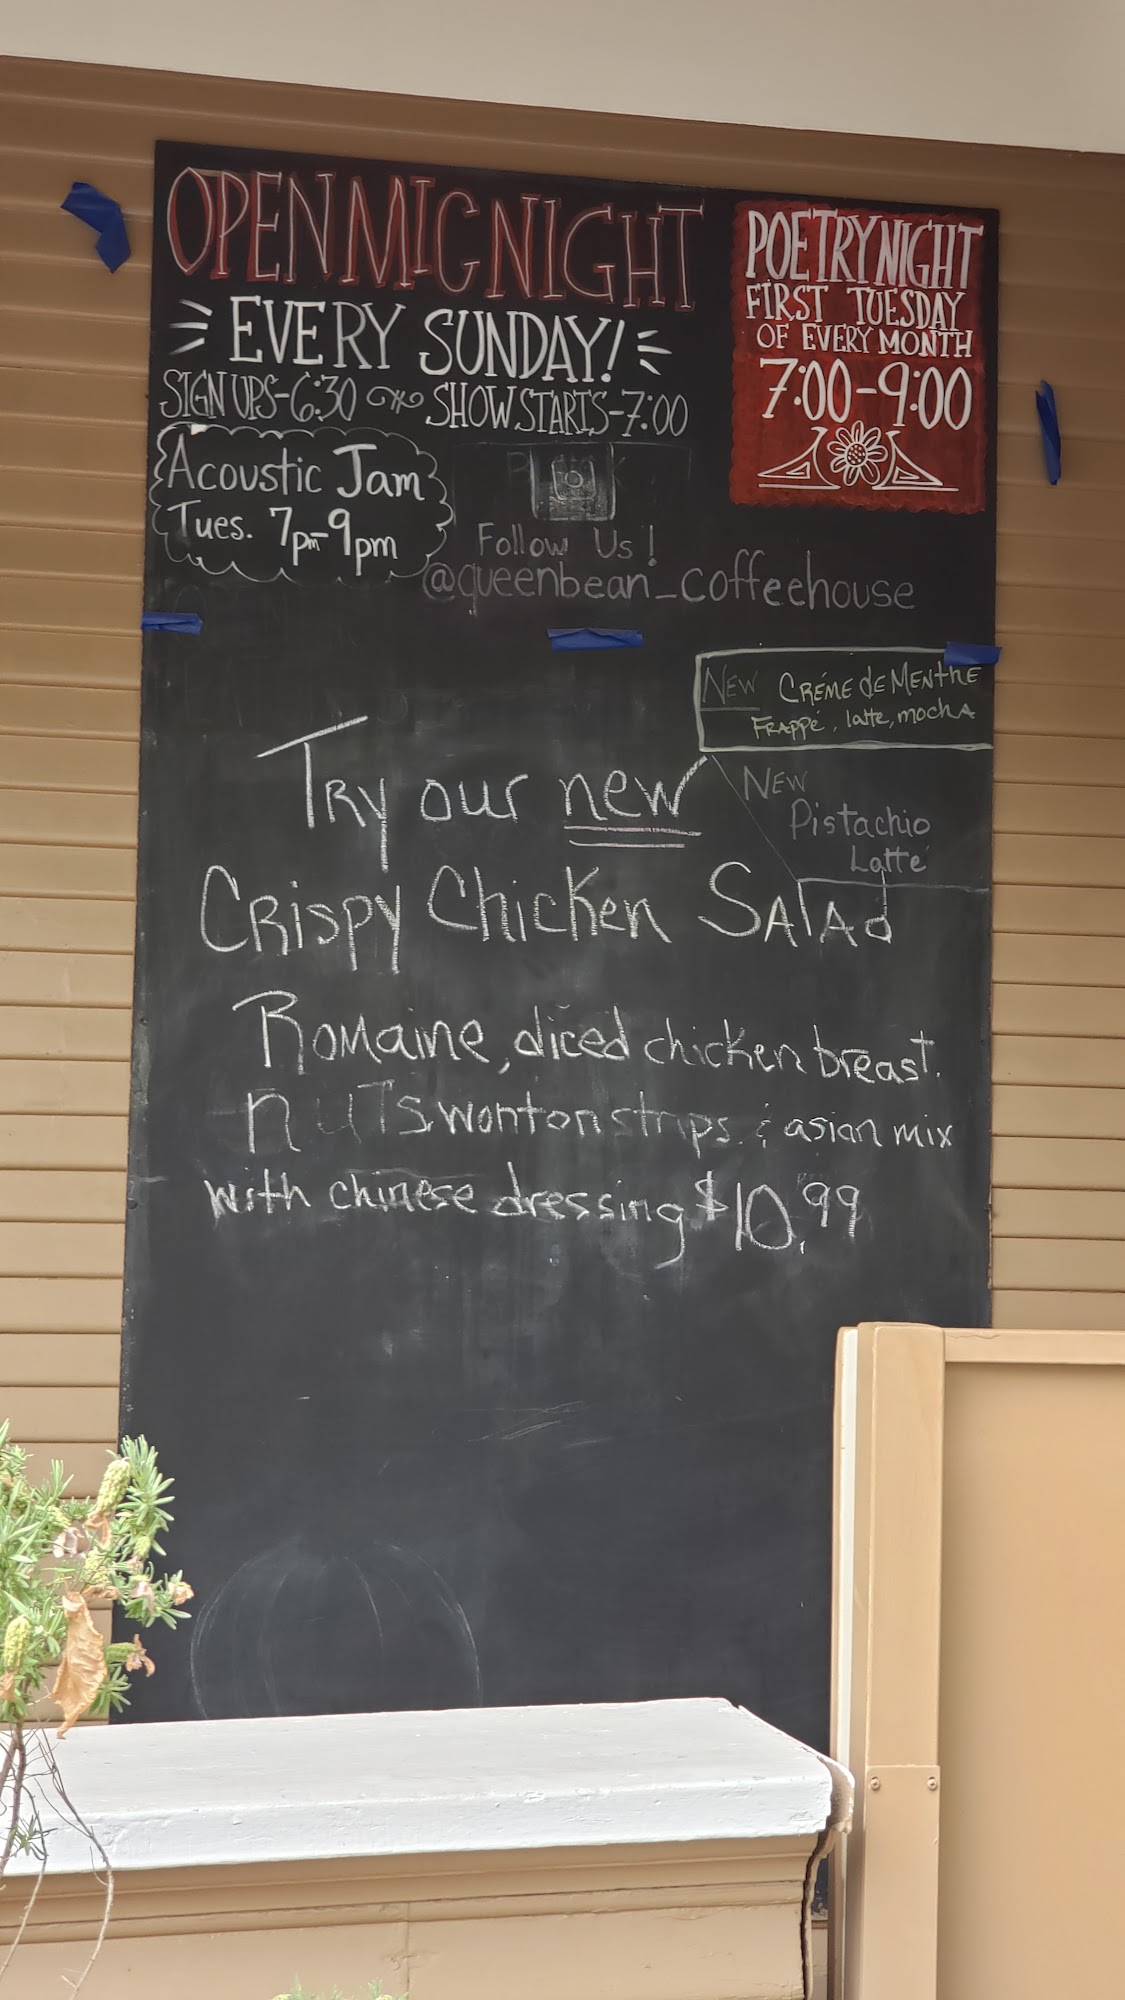 OPEN MIC NIGHT
EVERY SUNDAY!
SIGN UPS-6:30 SHOW STARTS-7:00
POETRY NIGHT
FIRST TUESDAY
OF EVERY MONTH
7:00-9:00
Acoustic Jam
Tues. 7pm-9pm
Follow Us!
@queenbean_coffeehouse
NEW CRÉME de MENTHE
FRAPPÉ, latte, mochA
NEW
Pistachio
Latte
TRY our new
CRispy Chicken SAlAd
ROMAine, diced chicken breast.
nuTs, wonton strips & asian mix
with chinese dressing $10.99